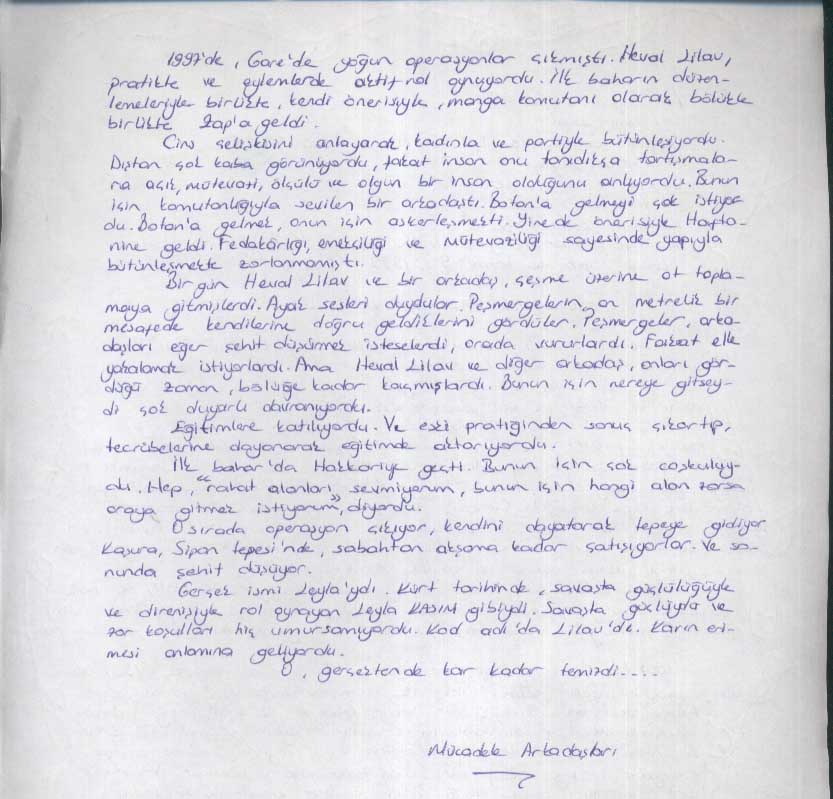 1997'de, Gare'de yoğun operasyonlar çıkmıştı. Heval Lilav,
pratikte ve eylemlerde aktif rol oynuyordu. İlk baharın düzen-
lemeleriyle birlikte, kendi önerisiyle, manga komutanı olarak bölükle
birlikte Zap'a geldi.
Cins çelişkisini anlayarak, kadınla ve partiyle bütünleşiyordu.
Dıştan çok kaba görünüyordu, fakat insan onu tanıdıkça tartışmala-
ra açık, mütevati, ölçülü ve olgun bir insan olduğunu anlıyordu. Bunun
için komutanlığıyla sevilen bir arkadaştı. Botan'a gelmeyi çok istiyor-
du. Botan'a gelmek, onun için askerleşmekti. Yine de önerisiyle Hafta-
nine geldi. Fedakarlığı, emekçiliği ve mütevaziliği sayesinde yapıyla
bütünleşmekte zorlanmamıştı.
Bir gün Heval Lilav ve bir arkadaş, çeşme üzerine ot topla-
maya gitmişlerdi. Ayak sesleri duydular. Peşmergelerin, on metrelik bir
mesafede kendilerine doğru geldiklerini gördüler. Peşmergeler, arka-
daşları eğer şehit düşürmek isteselerdi, orada vururlardı. Fakat elle
yakalamak istiyorlardı. Ama Heval Lilav ve diğer arkadaş, onları gör-
düğü zaman, bölüğe kadar kaçmışlardı. Bunun için nereye gitsey-
di çok duyarlı davranıyordu.
Eğitimlere katılıyordu. Ve eski pratiğinden sonuç çıkartıp,
tecrübelerine dayanarak eğitimde aktarıyordu.
İlk bahar'da Hakkariye geçti. Bunun için çok coşkuluy-
du. Hep, "rahat alanları sevmiyorum, bunun için hangi alan zorsa
oraya gitmek istiyorum" diyordu.
O sırada operasyon çıkıyor, kendini dayatarak tepeye gidiyor
Kaşura, Sipan tepesi'nde, sabahtan akşama kadar çatışıyorlar. Ve so-
nunda şehit düşüyor.
Gerçek ismi Leyla'ydı. Kürt tarihinde, savaşta güçlülüğüyle
ve direnişiyle rol oynayan Leyla KASIM gibiydi. Savaşta güçlüydü ve
zor koşulları hiç umursamıyordu. Kod adı'da Lilav'dı. Karın eri-
mesi anlamına geliyordu.
O, gerçektende kar kadar temizdi....
Mücadele Arkadaşları